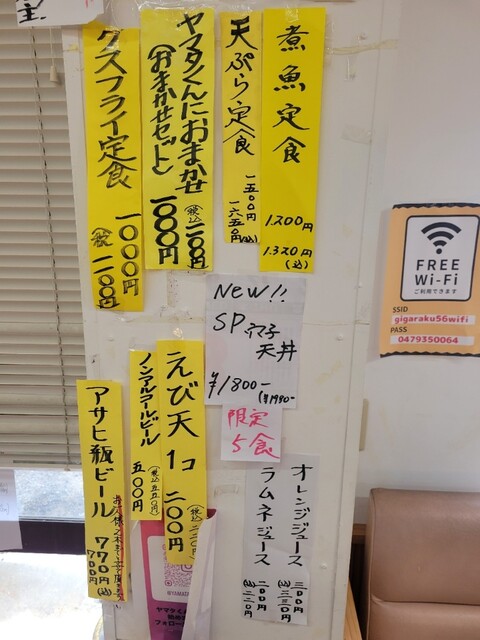 煮魚定食
1.200円
1.320円
(込)
天ぷら定食
一五〇〇円
一六五〇円(込)
ヤマタくんにおまかせ
(おまかせセット)
一〇〇〇円
(税込)一一〇〇円
フライ定食
一〇〇〇円
(税)一一〇〇円
FREE
Wi-Fi
ご利用できます
SSID
gigaraku56wifi
PASS
0479350064
New!!
SP穴子
天丼
¥1800-
(¥1980-
限定
5食
えび天1コ
二〇〇円
(税込)二二〇円
ノンアルコールビール
五〇〇円
(税込五五〇円)
アサヒ瓶ビール
770円(込)
700円
オレンジジュース
三〇〇円
(込)三三〇円
ラムネジュース
二〇〇円
(込)二二〇円
フォロー